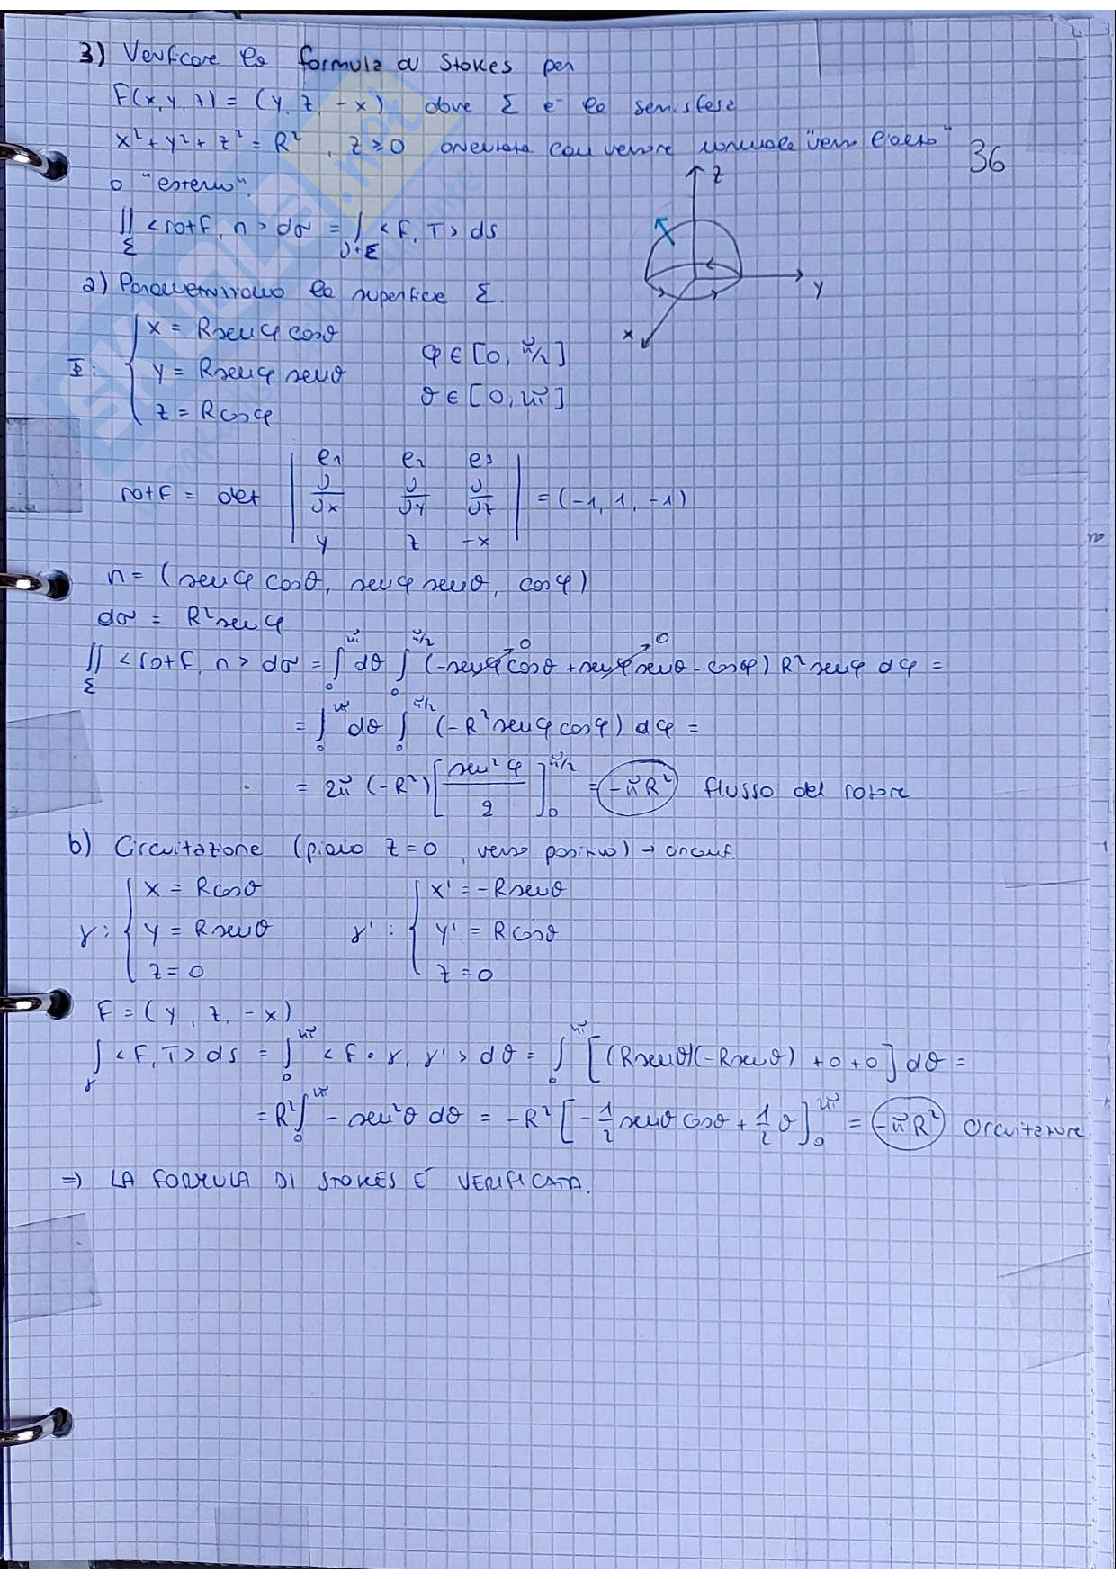 3) Verificare la formula di Stokes per
F(x, y, z) = (y, z, -x) dove Σ è la semisfera
x² + y² + z² = R², z ≥ 0 orientata con versore normale "verso l'alto"
36
o "esterno".
∬_Σ <rotF, n> dσ = ∫_∂+Σ <F, T> ds
z
y
x
a) Parametrizziamo la superficie Σ.
Φ: { x = R senφ cosθ
y = R senφ senθ
z = R cosφ
φ ∈ [0, π/2]
θ ∈ [0, 2π]
rotF = det | e₁ e₂ e₃
∂/∂x ∂/∂y ∂/∂z
y z -x | = (-1, 1, -1)
n = (senφ cosθ, senφ senθ, cosφ)
dσ = R² senφ
∬_Σ <rotF, n> dσ = ∫₀^2π dθ ∫₀^π/2 (-senφ cosθ →0 + senφ senθ →0 - cosφ) R² senφ dφ =
= ∫₀^2π dθ ∫₀^π/2 (-R² senφ cosφ) dφ =
= 2π (-R²) [sen²φ / 2]₀^π/2 = -πR² flusso del rotore
b) Circuitazione (piano z = 0, verso positivo) → circonf
γ: { x = R cosθ
y = R senθ
z = 0
γ': { x' = -R senθ
y' = R cosθ
z = 0
F = (y, z, -x)
∫_γ <F, T> ds = ∫₀^2π <F∘γ, γ'> dθ = ∫₀^2π [(R senθ)(-R senθ) + 0 + 0] dθ =
= R² ∫₀^2π - sen²θ dθ = -R² [-1/2 senθ cosθ + 1/2 θ]₀^2π = -πR² Circuitazione
⇒ LA FORMULA DI STOKES È VERIFICATA.